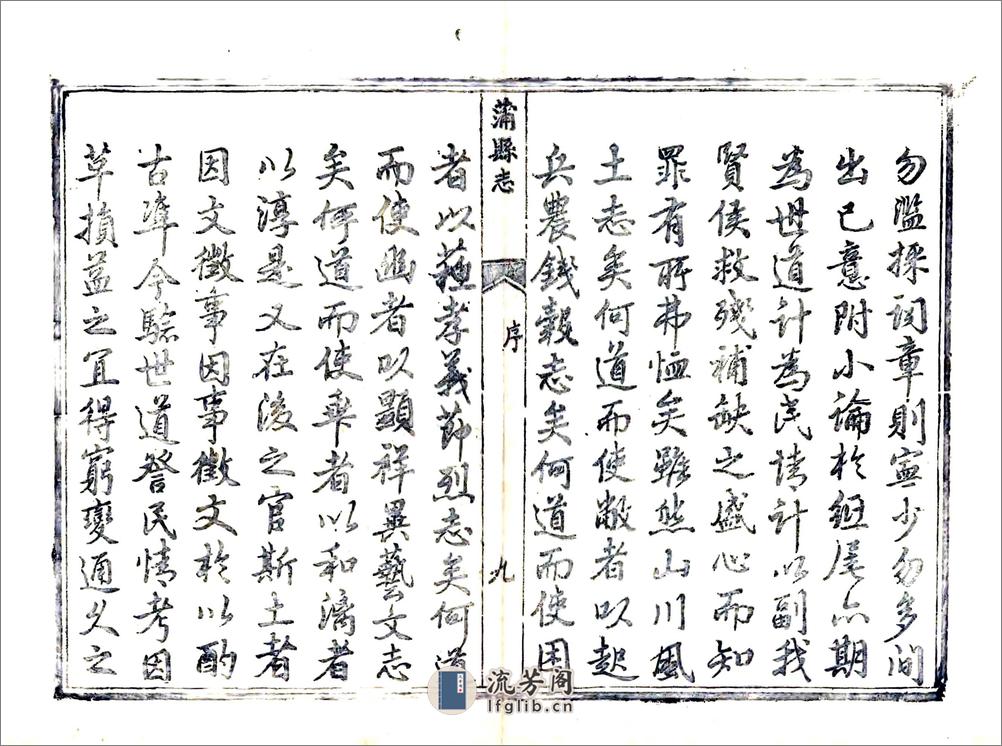 勿濫採詞章則寧少勿多間
出已意附小論於銍尾亦期
為世道計為民情計以副我
賢侯救殘補缺之盛心而知
罪有所弗恤矣雖然山川風
土志矣何道而使敝者以起
兵農錢穀志矣何道而使困
蒲縣志
序
九
者以蘓孝義節烈志矣何道
而使幽者以顯祥異藝文志
矣何道而使乖者以和漓者
以淳是又在後之官斯土者
因文徵事因事徵文於以酌
古準今驗世道詧民情考因
革損益之宜得窮變通久之
流芳阁
lfglib.cn